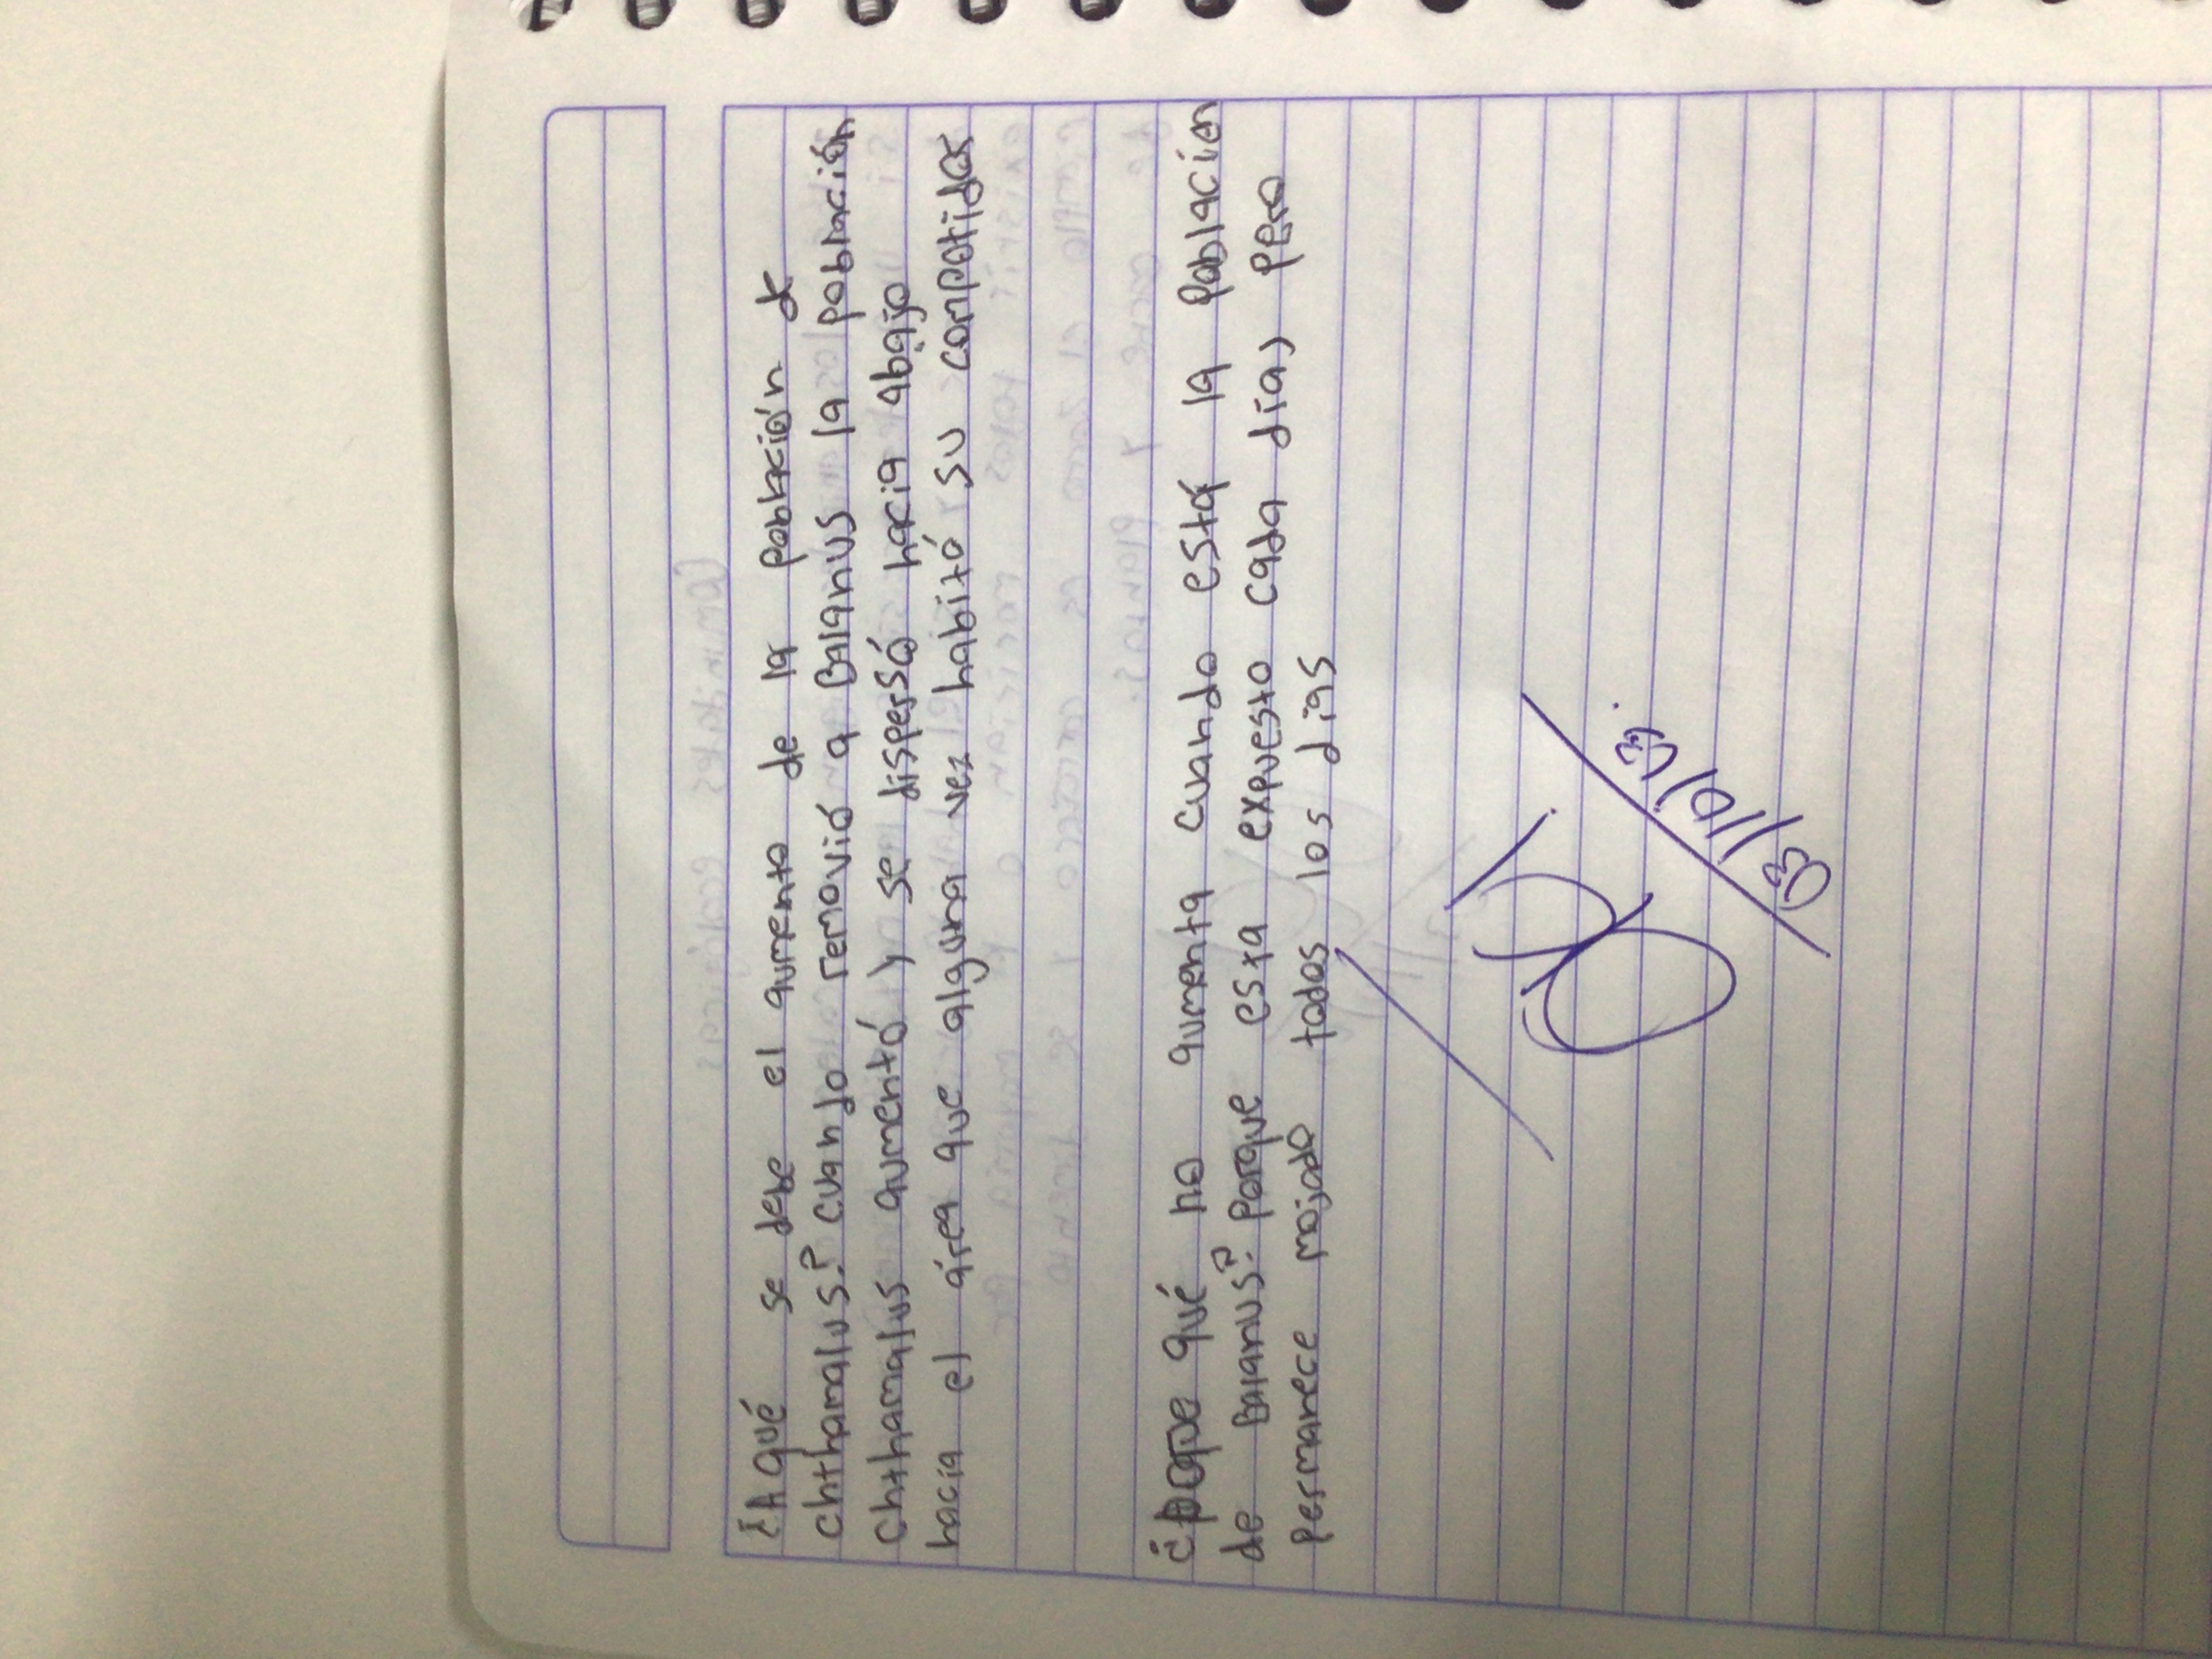 ¿A qué se debe el aumento de la población de
Chthamalus? Cuando removió a Balanus la población
Chthamalus aumentó y se dispersó hacia abajo
hacia el área que alguna vez habitó su competidor
¿Por qué no aumenta cuando está la población
de Balanus? Porque esta expuesto cada día, pero
permanece mojado todos los dias
03/10/